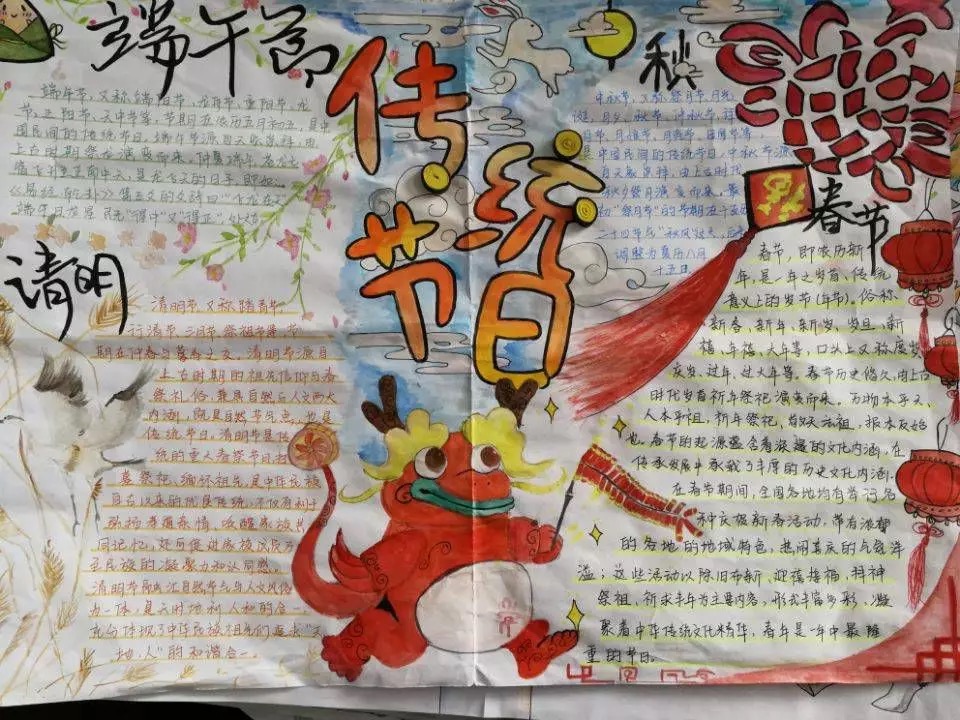 端午节
端午节,又称端阳节,龙舟节,重阳节,龙
节,五阳节,天中节等,节期在农历五月初五,是中
国民间的传统节日。端午节源自天象崇拜,由
上古时期祭龙演变而来。仲夏端午,苍龙七
宿飞升至正南中天,是龙飞天的日子,即如
《易经·乾卦》第五爻的爻辞曰“飞龙在天”
端午日龙星既“得中”又“得正”
清明
清明节,又称踏青节
行清节、三月节、祭祖节等,节
期在仲春与暮春之交。清明节源自
上古时期的祖先信仰与春
祭礼俗,兼具自然与人文两大
内涵,既是自然节气点,也是
传统节日,清明节是传
统的重大春祭节日,扫
墓祭祀、缅怀祖先,是中华民族
自古以来的优良传统,不仅有利于
弘扬孝道亲情、唤醒家族共
同记忆,还可促进家族成员乃
至民族的凝聚力和认同感。
清明节融汇自然节气与人文风俗
为一体,是天时地利人和的合一
充分体现了中华民族祖先们追求“天
地、人”的和谐合一。
传统
节日
秋
中秋节,又称祭月节、月光
诞、月夕、秋节、仲秋节、拜
月节、月娘节、月亮节、团圆节等,
是中国民间的传统节日,中秋节源
自天象崇拜,由上古时代
秋夕祭月演变而来。最
初“祭月节”的节期在干支历
二十四节气“秋分”这天,后来
调整为夏历八月
十五日。
春节
春节,即农历新
年,是一年之岁首,传统
意义上的岁节(年节)。俗称
新春、新年、新岁、岁旦、新
禧、年禧、大年等,口头上又称度岁
庆岁、过年、过大年等。春节历史悠久,由上古
时代岁首祈年祭祀演变而来。万物本乎天、
人本乎祖,祈年祭祀、敬天法祖,报本反始
也。春节的起源蕴含着深邃的文化内涵,在
传承发展中承载了丰厚的历史文化内涵。
在春节期间,全国各地均有举行各
种庆祝新春活动,带有浓郁
的各地的地域特色,热闹喜庆的气氛洋
溢;这些活动以除旧布新、迎禧接福、拜神
祭祖、祈求丰年为主要内容,形式丰富多彩,凝
聚着中华传统文化精华,春年是一年中最隆
重的节日。